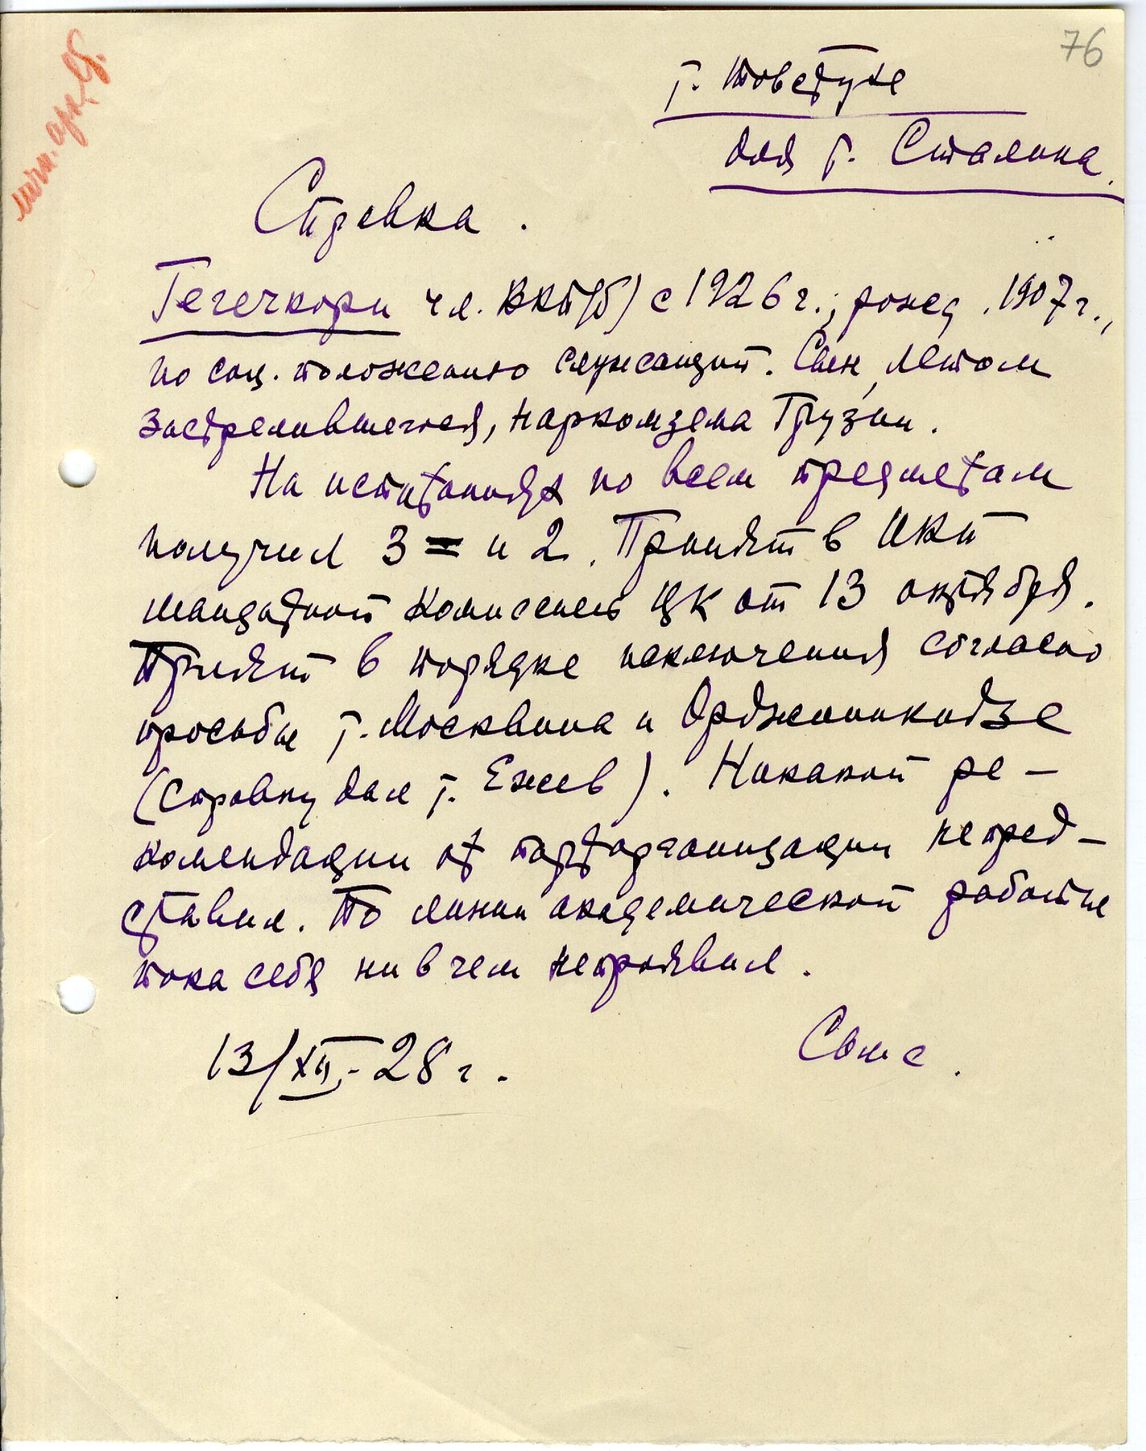 76
личн. арх. Ст.
т. Товстухе
для т. Сталина.
Справка.
Гегечкори чл. ВКП(б) с 1926 г.; рожд. 1907 г.,
по соц. положению служащий. Сын, летом
застрелившегося, наркомзема Грузии.
На испытаниях по всем предметам
получил 3 = и 2. Принят в ИКП
мандатной комиссией ЦК от 13 октября.
Принят в порядке исключения согласно
просьбы т. Москвина и Орджоникидзе
(справку дал т. Ежов). Никакой ре-
комендации от парторганизации не пред-
ставил. По линии академической работы
пока себя ни в чем не проявил.
13/XII-28 г.